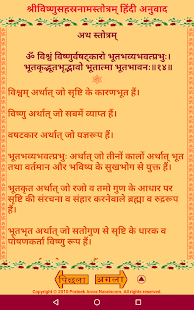 श्रीविष्णुसहस्रनामस्तोत्रम् हिंदी अनुवाद
अथ स्तोत्रम्
ॐ विश्वं विष्णुर्वषट्कारो भूतभव्यभवत्प्रभुः।
भूतकृद्भूतभृद्भावो भूतात्मा भूतभावनः॥१४॥
विश्वम् अर्थात् जो सृष्टि के कारणभूत हैं।
विष्णु अर्थात् जो सबमें व्याप्त हैं।
वषटकार अर्थात् जो यज्ञरूप हैं।
भूतभव्यभवत्प्रभुः अर्थात् जो तीनों कालों अर्थात् भूत
तथा वर्तमान और भविष्य के सुखभोग से युक्त हैं।
भूतकृत अर्थात् जो रजो व तमो गुण के आधार पर
सृष्टि की संरचना व संहार करनेवाले ब्रह्मा व रुद्ररूप
हैं।
भूतभृत अर्थात् जो सतोगुण से सृष्टि के धारक व
पोषणकर्ता विष्णु रूप हैं।
पिछला अगला
Copyright © 2015 Prateek Arora Navaroscom. All rights reserved